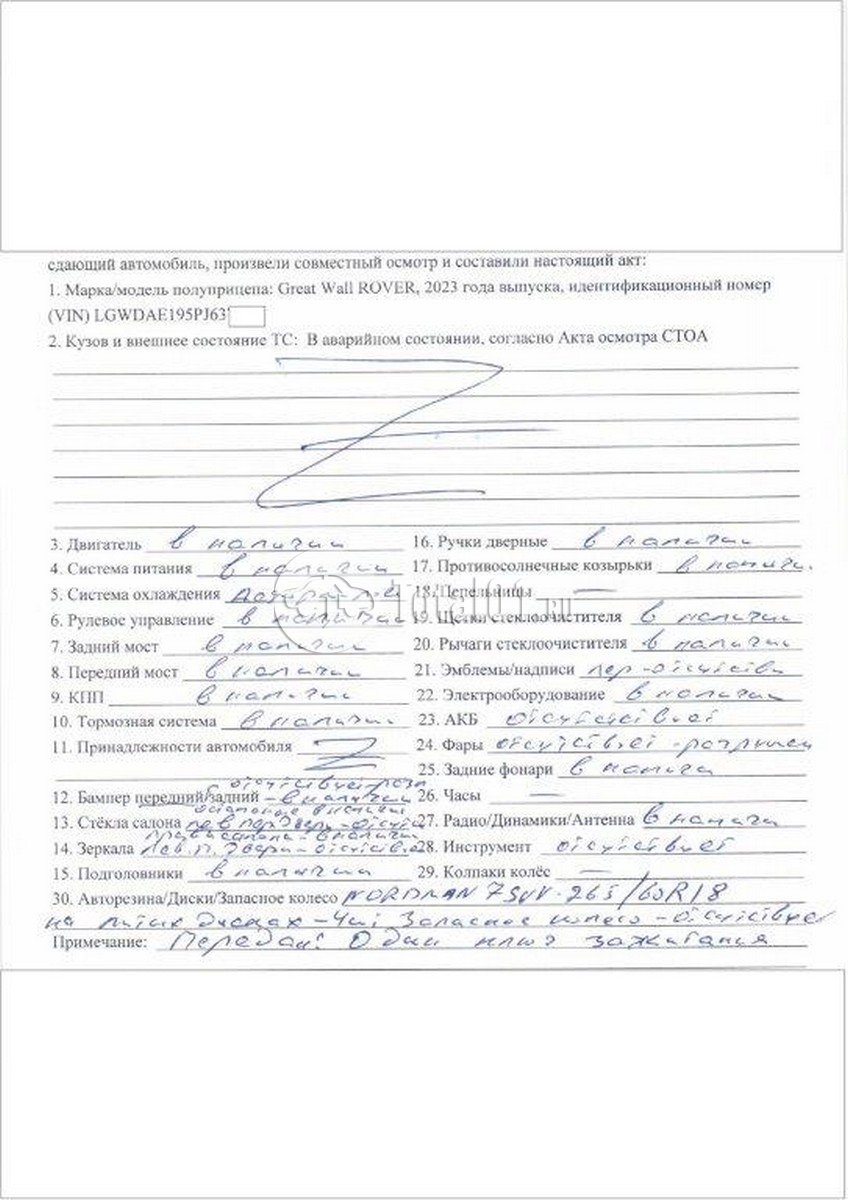 сдающий автомобиль, произвели совместный осмотр и составили настоящий акт:
1. Марка/модель полуприцепа: Great Wall ROVER, 2023 года выпуска, идентификационный номер
(VIN) LGWDAE195PJ63
2. Кузов и внешнее состояние ТС: В аварийном состоянии, согласно Акта осмотра СТОА
3. Двигатель в наличии
4. Система питания в наличии
5. Система охлаждения
6. Рулевое управление в наличии
7. Задний мост в наличии
8. Передний мост в наличии
9. КПП в наличии
10. Тормозная система в наличии
11. Принадлежности автомобиля
отсутствует
12. Бампер передний/задний - в наличии
13. Стёкла салона
14. Зеркала
15. Подголовники в наличии
16. Ручки дверные в наличии
17. Противосолнечные козырьки в наличи.
18. Пепельницы —
19. Щетки стеклоочистителя в наличии
20. Рычаги стеклоочистителя в наличии
21. Эмблемы/надписи пер - отсутстви
22. Электрооборудование в наличии
23. АКБ отсутствует
24. Фары отсутствует -
25. Задние фонари в наличи
26. Часы —
27. Радио/Динамики/Антенна в наличи
28. Инструмент отсутствует
29. Колпаки колёс —
30. Авторезина/Диски/Запасное колесо NORDMAN 7 SUV - 265/60R18
на литых дисках - 4шт Запасное колесо - отсутствует
Примечание: Передан: Один ключ зажигания
total01.ru